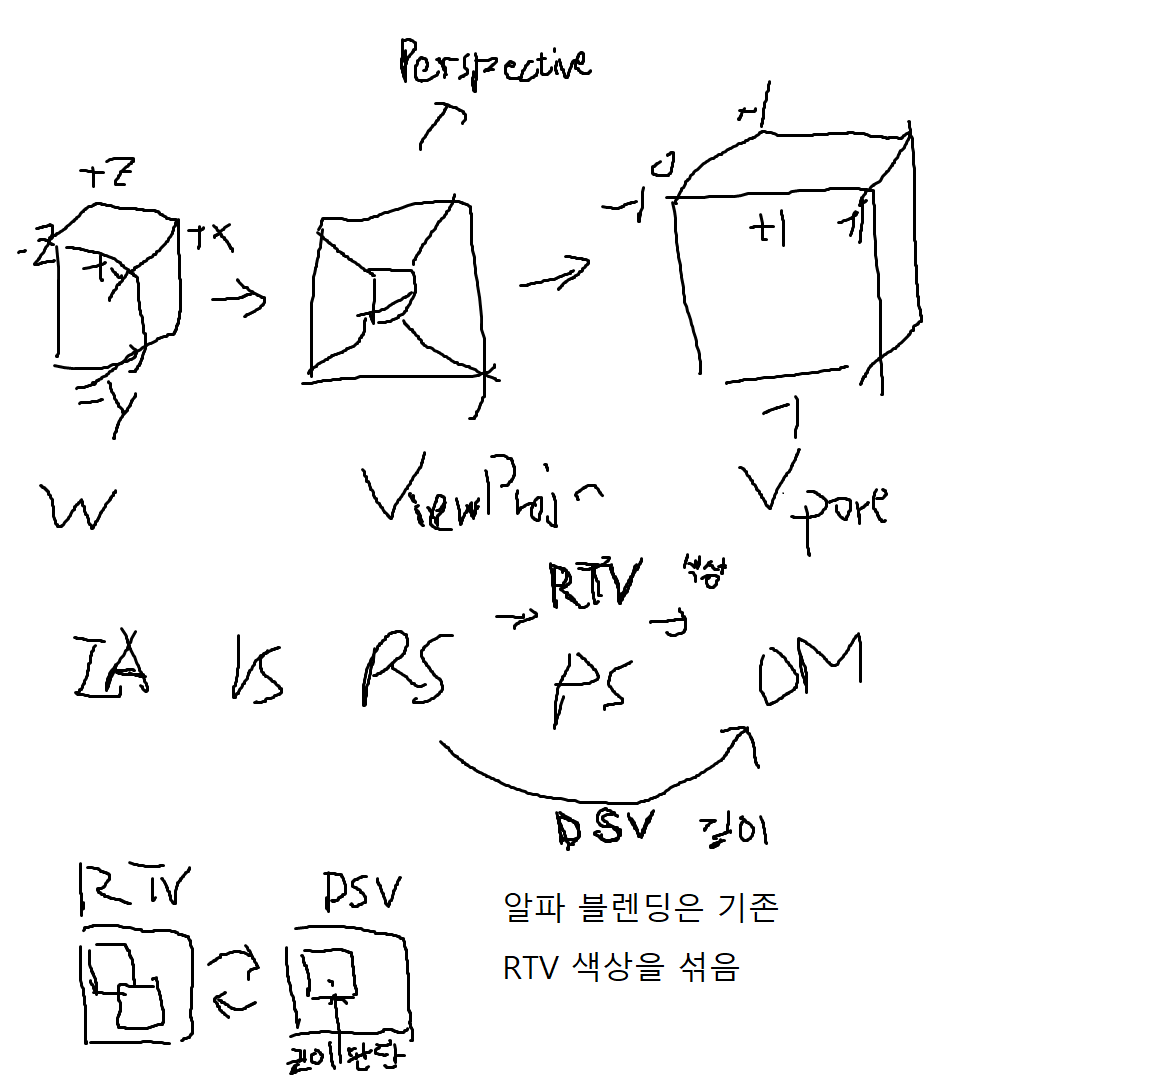 Perspective
+Z
-Z
+X
+Y
-Y
+1
0
-1
+1
+1
-1
W
ViewProj
V pore
RTV
색상
IA VS RS PS OM
DSV 깊이
RTV DSV
알파 블렌딩은 기존
RTV 색상을 섞음
깊이 판단